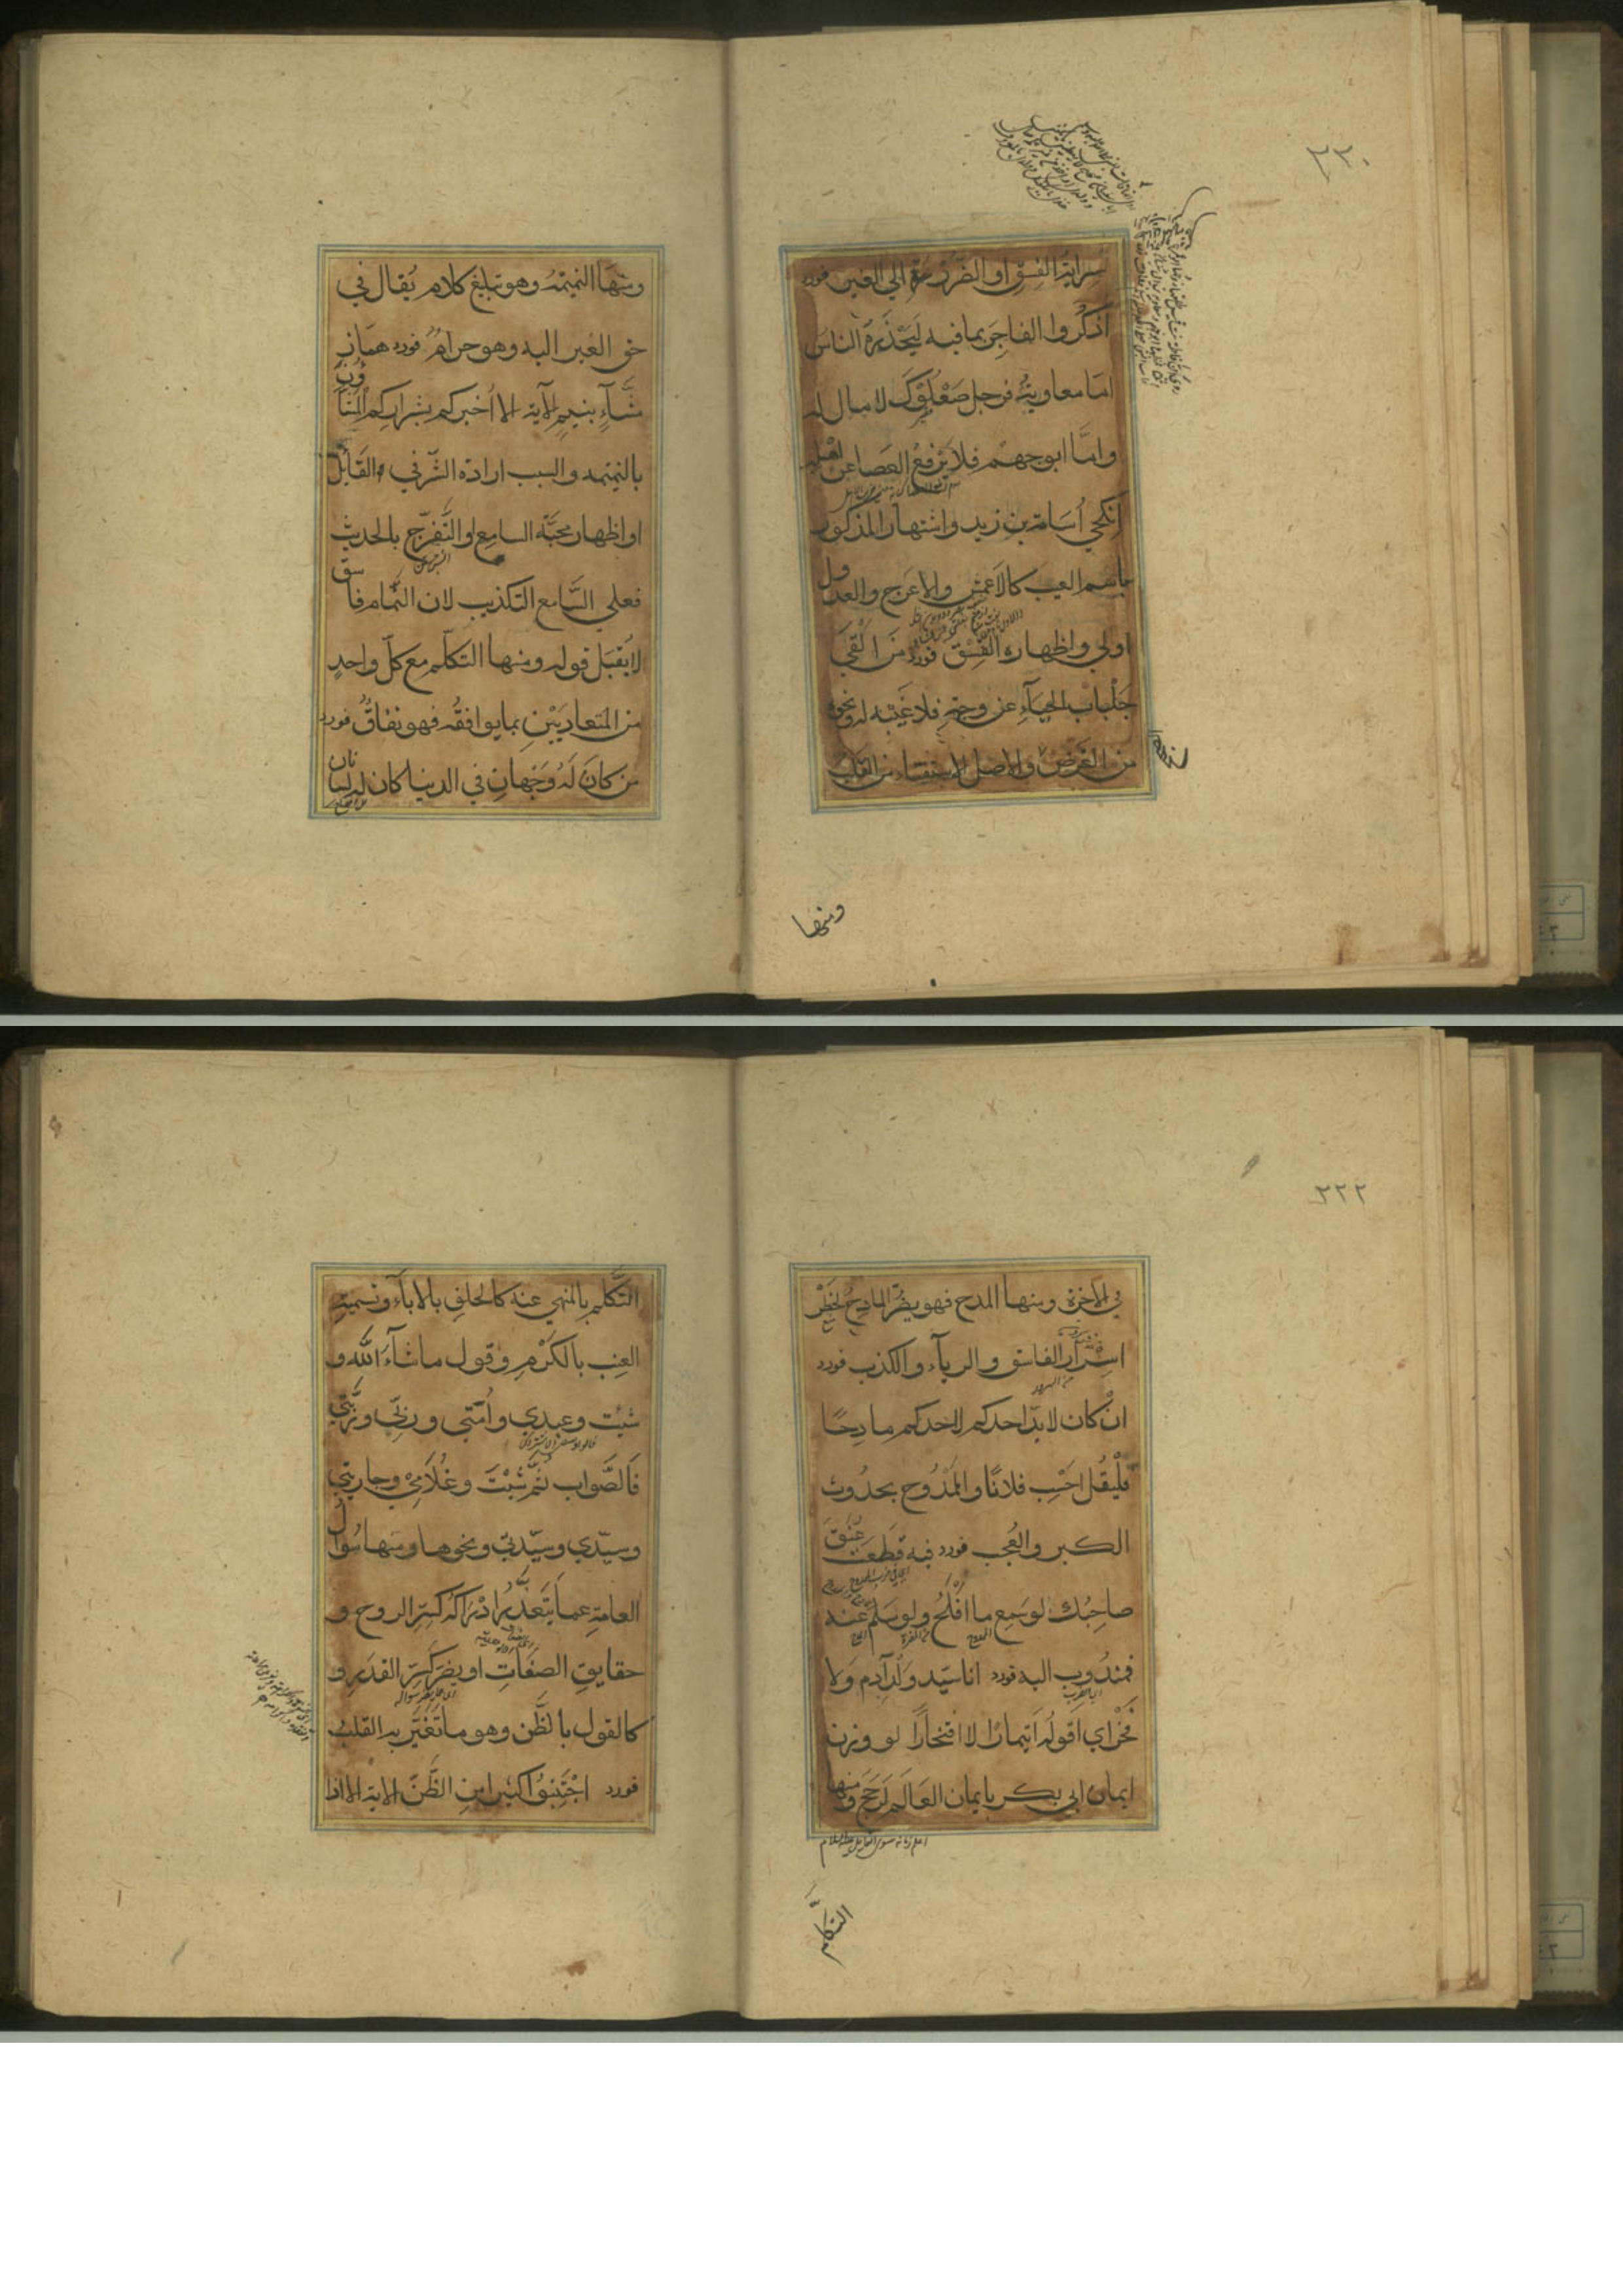 ٢٢٠
سراية الفسق او الضرر غيره الي الغير فورد
اذكروا الفاجر بما فيه ليحذره الناس
امّا معاوية فرجل صعلوك لا مال له
وامّا ابو جهم فلا يرفع العصا عن اهله
انكحي اسامة بن زيد واشتهار المذكور
باسم العيب كالاعمش والاعرج والعدول
اولي واظهاره الفسق فورد من القي
جلباب الحيآء عن وجهه فلا غيبة له ونحوه
من الغرض والاصل الاستفتاء من القلب
ومنها
ومنها النميمة وهو تبليغ كلام يُقال في
حق الغير اليه وهو حرامٌ فورد همّاز
مشّآءٍ بنميمٍ الآية الا اخبركم بشراركم المشّاؤن
بالنميمه والسبب ارادة الشّر في القائل
او اظهار محبّة السامع او التّفرّج بالحديث
فعلي السّامع التكذيب لان النّمام فاسق
لا يُقبَل قوله ومنها التكلّم مع كلّ واحدٍ
من المتعاديَيْنِ بما يوافقُه فهو نفاقٌ فورد
من كانَ لَهُ وَجْهانِ في الدنيا كان له لسانان
٢٢٢
في الآخرة ومنها المدح فهو يضرّ المادح لخطر
اسْرار الفاسق والريآء والكذب فورد
انْ كان لا بدّ احدكم لاحدكم مادِحًا
فلْيقُل احْسِب فلانًا والمَمْدُوح بحدُوث
الكبر والعُجب فورد فيه قَطَعتَ عُنقَ
صاحِبُك لو سَمِع ما افْلَحُ ولو سَلم عنه
فمندُوب اليه فورد انا سيّد وَلَدِ آدم ولا
فَخْرَ اي اقولُه ايتمارًا لا افتخارًا لو وزن
ايمان ابي بكر بايمان العَالَم لَرَجَحَ ومنها
التكلّم
التّكلّم بالمنهي عنه كالحلف بالاباء وتسمية
العِنب بالكَرْم وقول ما شآءَ اللّه و
شئت وعبدي واَمَتي وربّي وربّتي
فالصَّواب ثمّ شئتَ وغُلامي وجاريتي
وسيّدي وسيّدتي ونحوها ومنها سُوال
العامة عما يَتعذّر ادْراكُه كسِرّ الروح و
حقايق الصفات او يضرّ كسِرّ القدَر و
كالقول بالظَّن وهو ما تَغيّر به القلب
فورد اجْتنِبُوا كثيرا من الظَّنّ الاية الا اذا